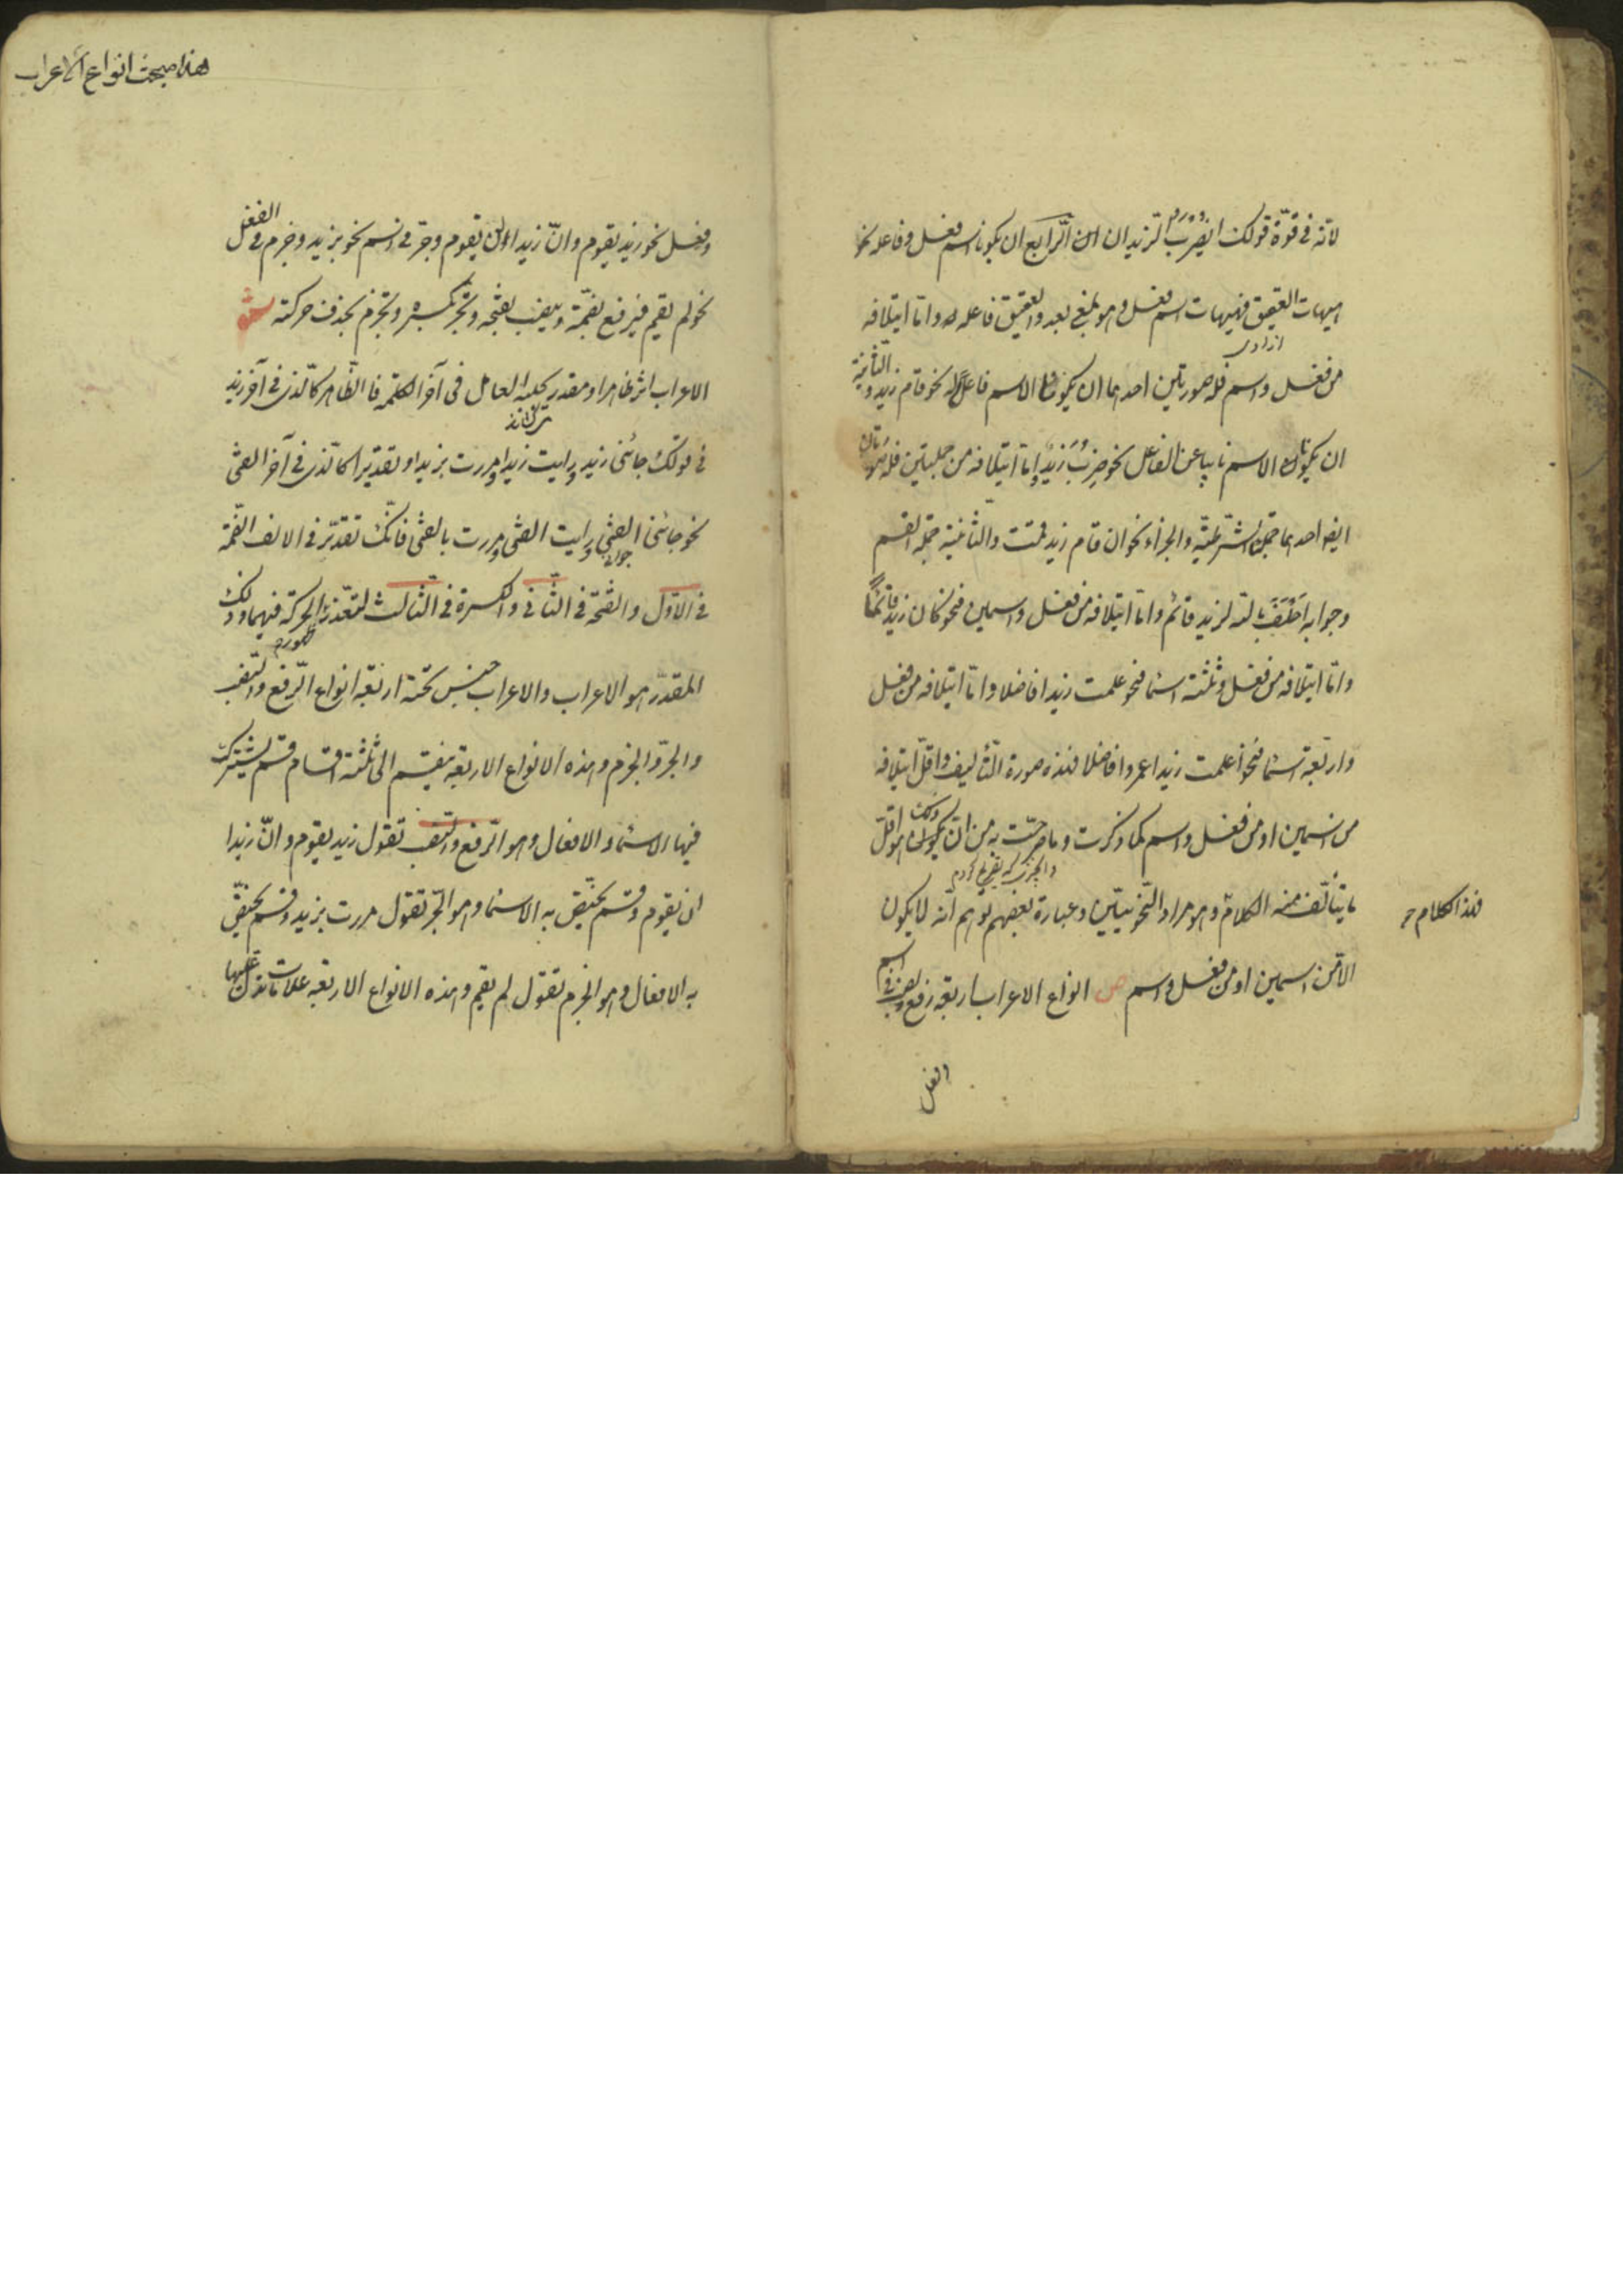 لانه فى قوّة قولك ايضرب الزيدان الرّابع ان يكونا اسم فعل وفاعله نحو
هيهات العقيق فهيهات اسم فعل وهو بمعنى بعد والعقيق فاعله واما ايتلافه
من فعل واسم فله صورتين احدهما ان يكون الاسم فاعلا نحو قام زيد والثانية
ان يكون الاسم نايبا عن الفاعل نحو ضرب زيد واما ايتلافه من جملتين فله صورتان
ايضا احدهما جملة الشرطيّة والجزاء نحو ان قام زيد قمت والثانية جملة القسم
وجوابه احلف بالله لزيد قائم واما ايتلافه من فعل واسمين فنحو كان زيد قائمًا
وامّا ايتلافه من فعل وثلثة اسماء فنحو علمت زيدا فاضلا وامّا ايتلافه من فعل
واربعة اسماء فنحو اعلمت زيدا عمروا فاضلا فهذه صورة التأليف واقلّ ايتلافه
من اسمين او من فعل واسم كما ذكرت وما صرحت به من انّ ذلك هو اقلّ
ما يتألّف منه الكلام وهو مراد النّحويّين وعبارة بعضهم توهم انّه لا يكون
فهذا الكلام
الا من اسمين او من فعل واسم ص انواع الاعراب اربعة رفع ونصب فى اسم
الفعل
هذا مبحث انواع الاعراب
وفعل نحو زيد يقوم وانّ زيدا لن يقوم وجرّ فى اسم نحو بزيد وجزم فى الفعل
نحو لم يقم فيرفع بضمّة وينصب بفتحه وتجرّ بكسره وتجزم بحذف حركته ش
الاعراب اثر ظاهر او مقدر يجلبه العامل فى آخر الكلمة فا الظّاهر كالّذى فى آخر زيد
فى قولك جائنى زيد ورايت زيدا ومررت بزيد او تقديرا كالّذى فى آخر الفتى
نحو جائنى الفتى ورايت الفتى ومررت بالفتى فانّك تقدّر فى الالف الضّمة
فى الاوّل والفتحة فى الثّانى والكسرة فى الثّالث لتعذّر الحركة فيهما وذلك
المقدّر هو الاعراب والاعراب جنس تحته اربعة انواع الرّفع والنّصب
والجرّ والجزم وهذه الانواع الاربعة ينقسم الى ثلثة اقسام قسم يشترك
فيها الاسماء والافعال وهو الرّفع والنّصب تقول زيد يقوم وانّ زيدا
لن يقوم وقسم يختصّ به الاسماء وهو الجرّ تقول مررت بزيد وقسم يختصّ
به الافعال وهو الجزم تقول لم يقم وهذه الانواع الاربعة علامات تدلّ عليها